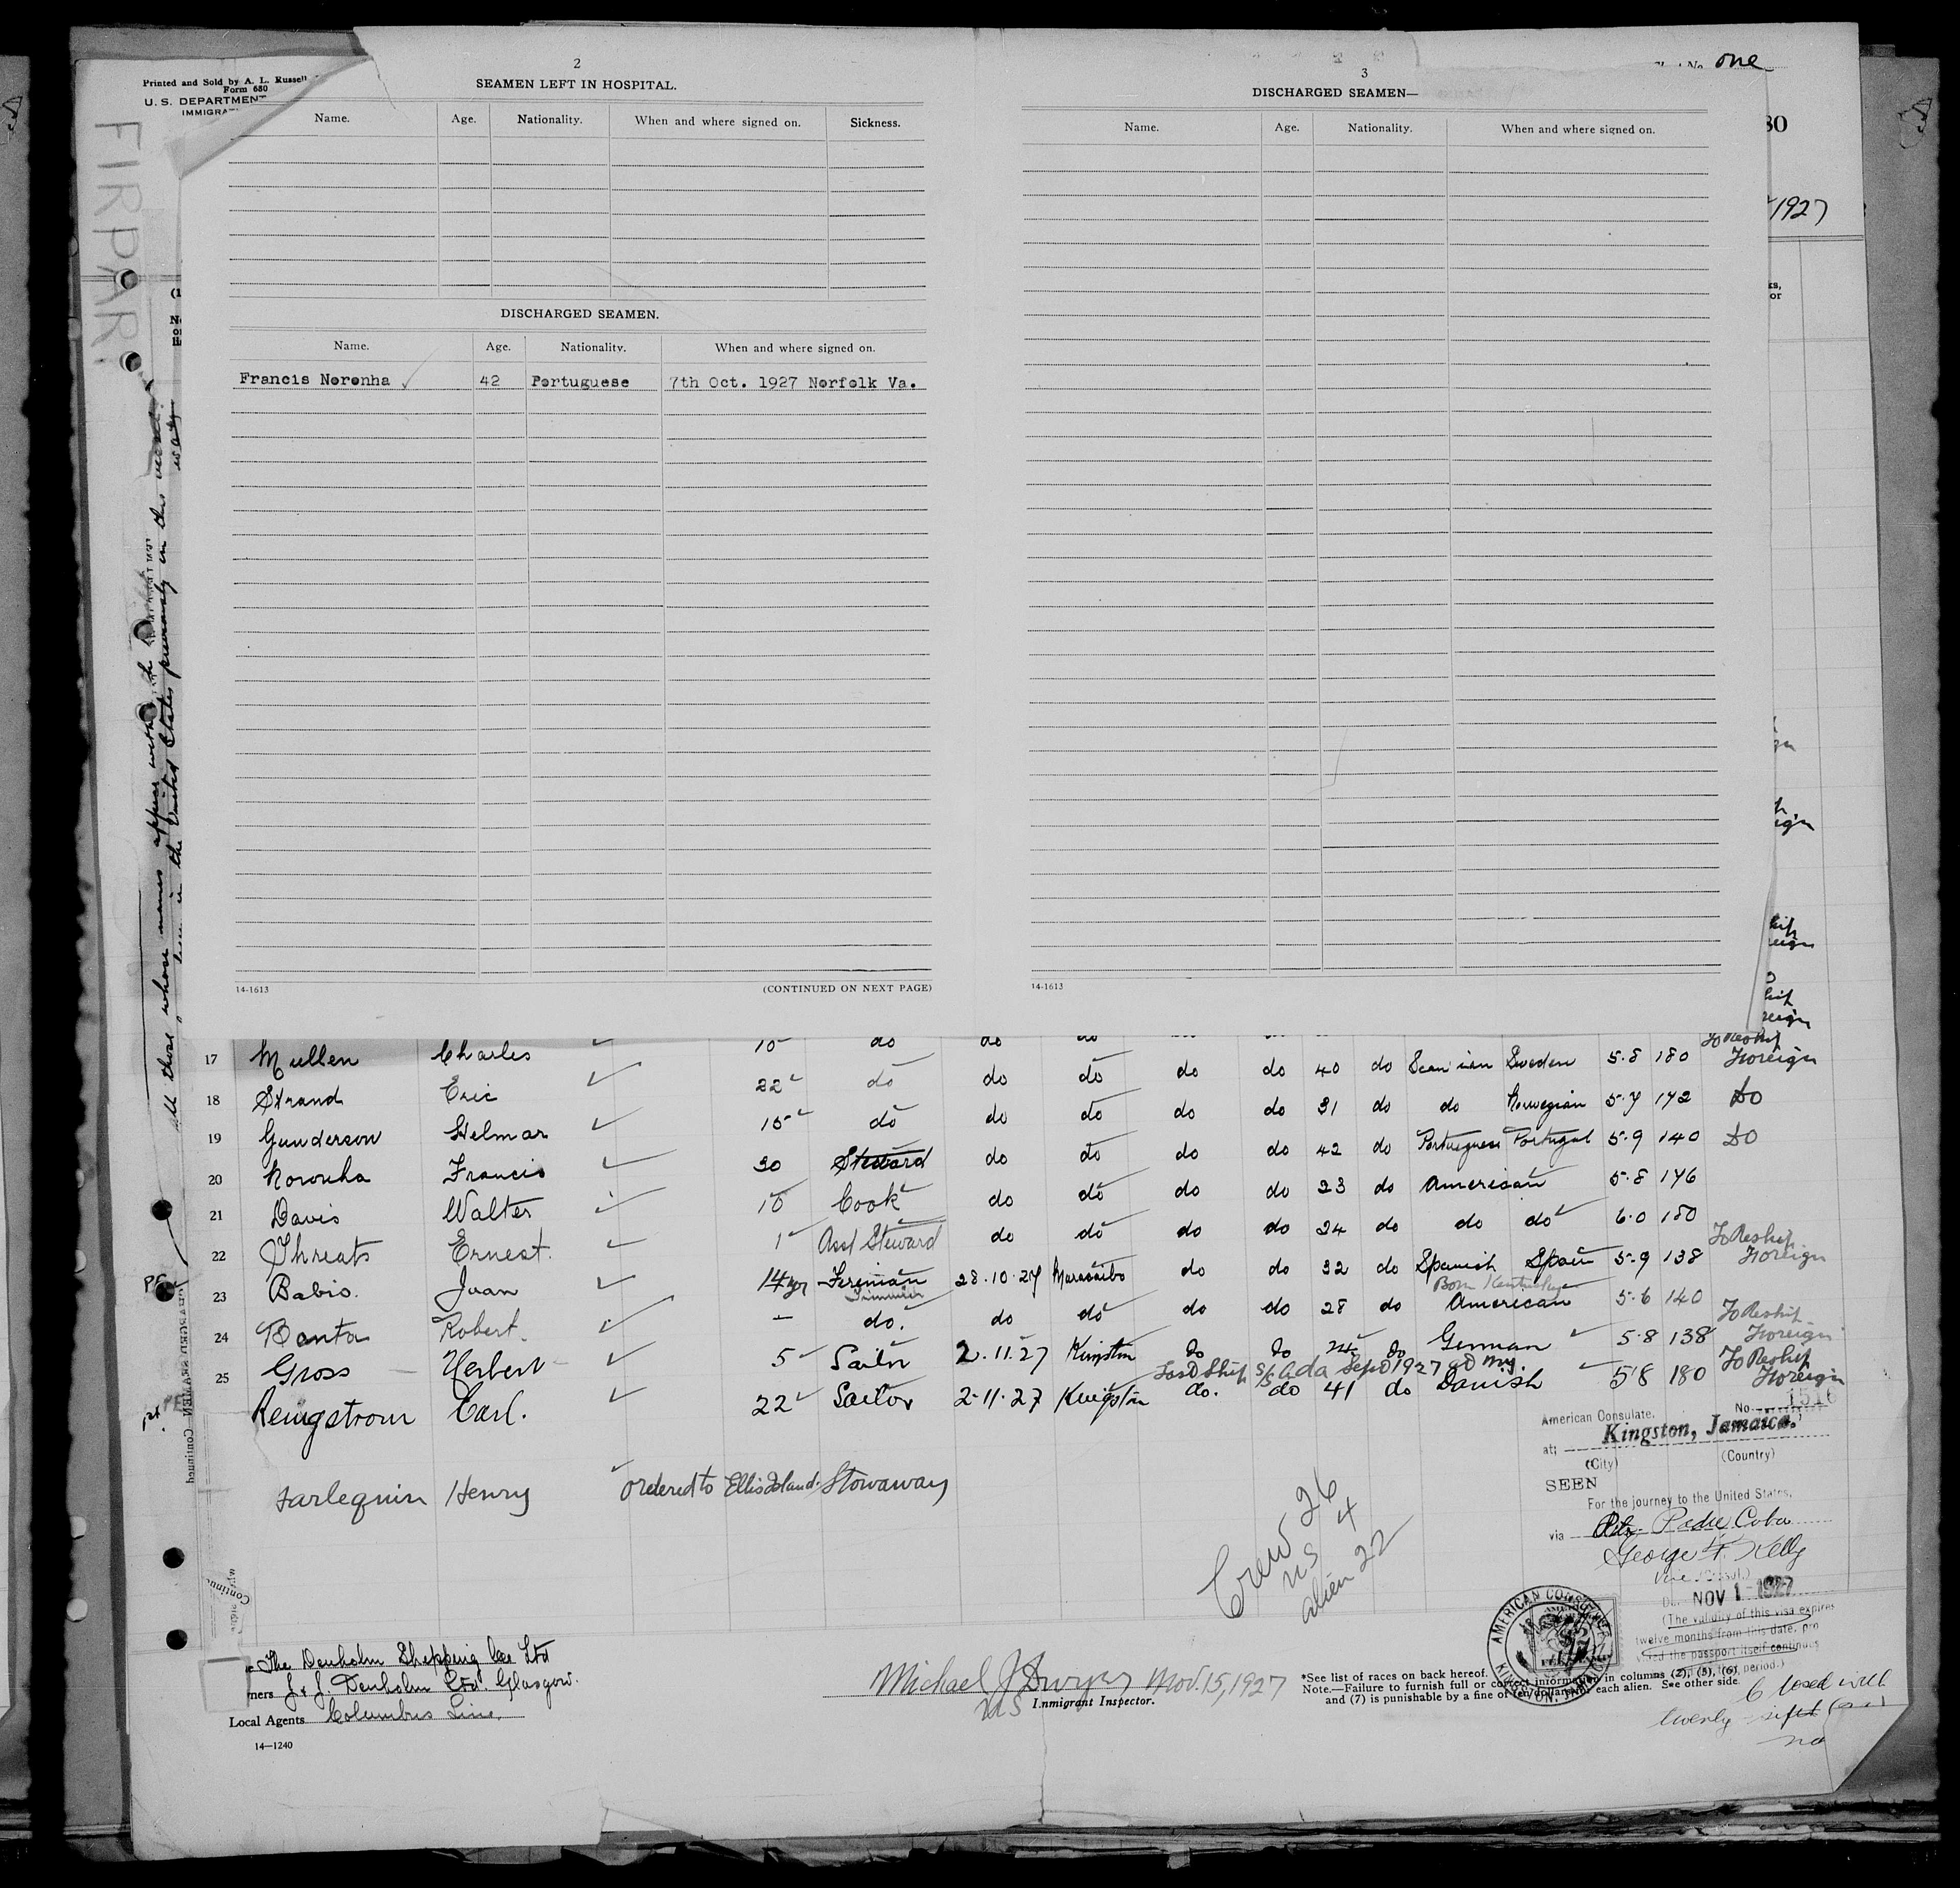 Printed and Sold by A. L. Russell
Form 680
U. S. DEPARTMENT
IMMIGRA
FIRPAR
2
SEAMEN LEFT IN HOSPITAL.
Name. Age. Nationality. When and where signed on. Sickness.
DISCHARGED SEAMEN.
Name. Age. Nationality. When and where signed on.
Francis Noronha 42 Portuguese 7th Oct. 1927 Norfolk Va.
14-1613 (CONTINUED ON NEXT PAGE)
3
DISCHARGED SEAMEN—
Name. Age. Nationality. When and where signed on.
14-1613
No. one
80
1927
all those whose names appear with
in the United States previously in this vessel
17 Mullen Charles 10 do do do do do 40 do Scan'ian Sweden 5.8 180 To Reship Foreign
18 Strand Eric 22 do do do do do 31 do do Norwegian 5.7 172 Do
19 Gunderson Helmar 15 do do do do do 42 do Portuguese Portugal 5.9 140 Do
20 Noronha Francis 30 Steward do do do do 23 do American 5.8 176
21 Davis Walter 10 Cook do do do do 24 do do do 6.0 150
22 Threats Ernest. 1 Asst Steward do do do do 32 do Spanish Spain 5.9 138 To Reship Foreign
23 Babio. Juan 14 yr Fireman 28.10.27 Maracaibo do do 28 do American 5.6 140
Born Kentucky
24 Banta Robert. — do. do do do do 24 do German 5.8 138 To Reship Foreign
25 Gross Herbert 5 Sailor 2.11.27 Kingston
Last Ship S/S Ada Sept 1927 at NY.
Rengstrom Carl. 22 Sailor 2-11-27 Kingston do. do 41 do Danish 5'8 180 To Reship Foreign
Harlequin Henry ordered to Ellis Island. Stowaway
Crew 26
US 4
alien 22
American Consulate. No. 1516
at; Kingston, Jamaica.
(City) (Country)
SEEN
For the journey to the United States,
via Padre Cuba
George F. Kelly
Vice (Consul.)
NOV 1 1927
(The validity of this visa expires
twelve months from this date, pro
vided the passport itself continues
period.)
AMERICAN CONSULATE
KINGSTON, JAMAICA
The Denholm Shipping Co Ltd
ners J. & J. Denholm Ltd. Glasgow.
Local Agents Columbus Line.
14—1240
Michael J Dwyer Nov. 15, 1927
US Immigrant Inspector.
*See list of races on back hereof.
Note.—Failure to furnish full or correct information in columns (2), (5), (6),
and (7) is punishable by a fine of ten dollars for each alien. See other side.
twenty